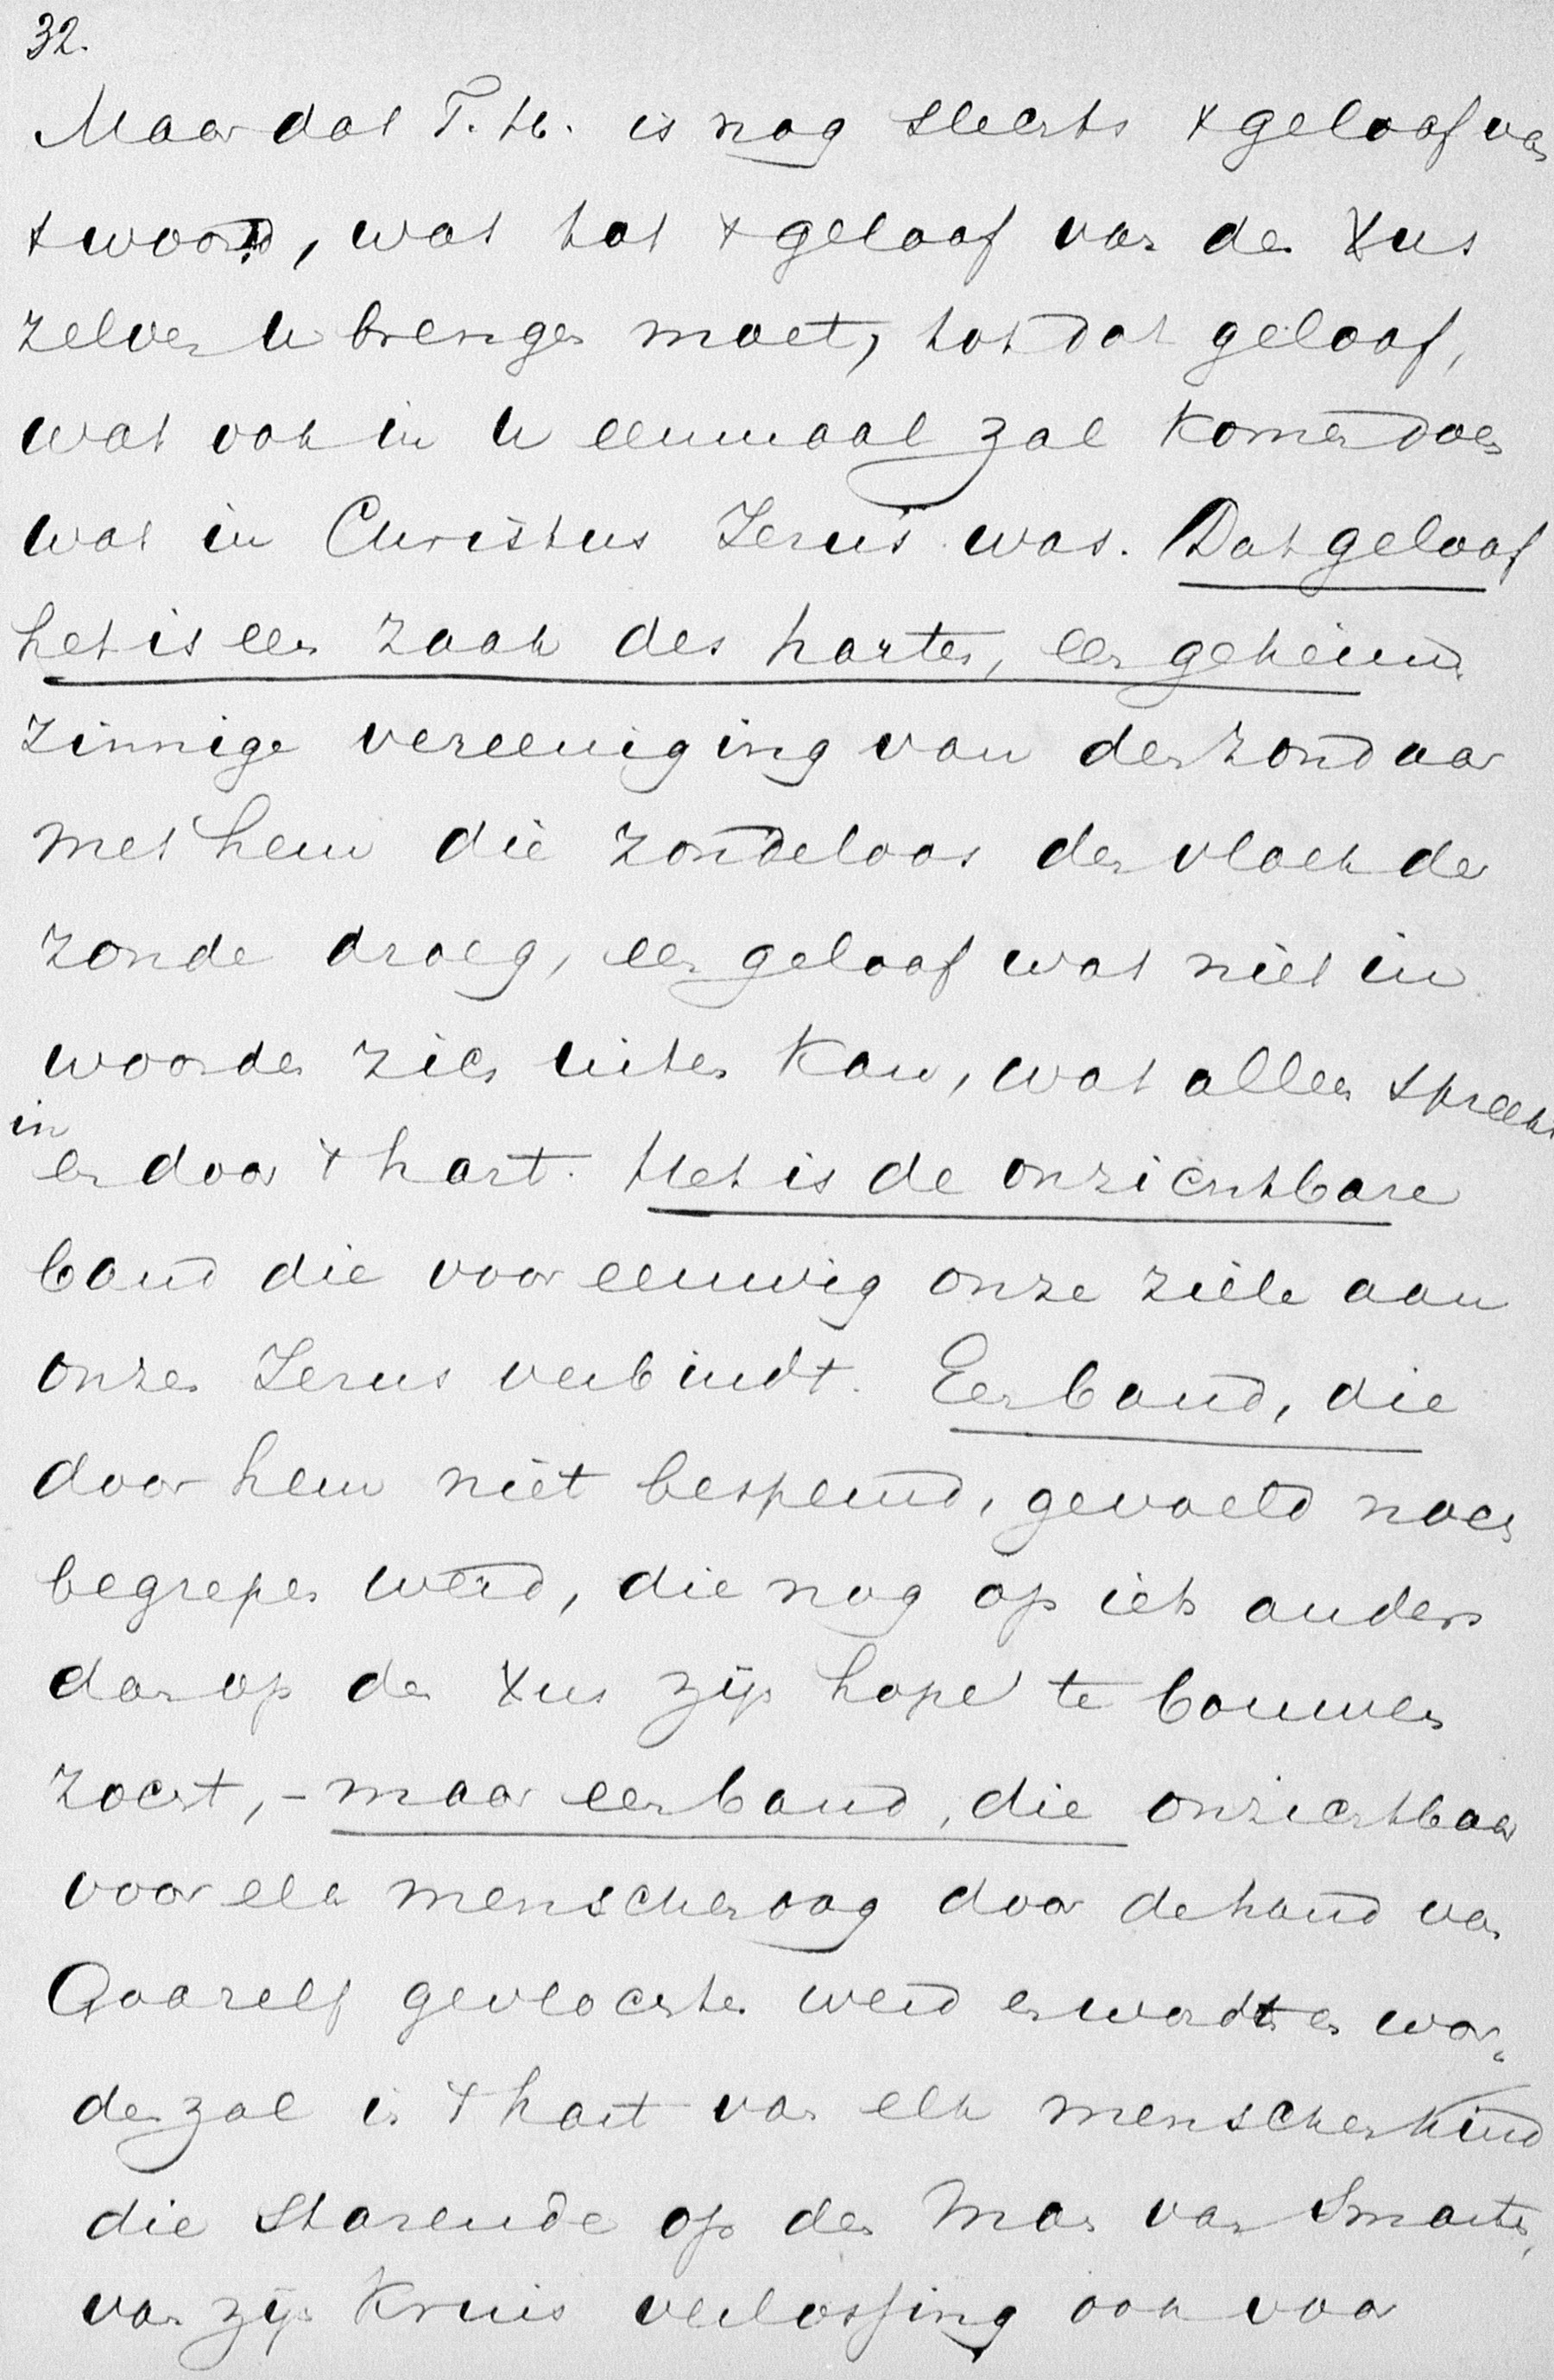 32.
Maar dat T. H. is nog slechts 't geloof van
't woord, wat tot 't geloof van den Xus
zelven U brengen moet, tot dat geloof,
wat ook in U eenmaal zal komen doen
wat in Christus Jezus was. Dat geloof
het is een zaak des harten, een geheim-
zinnige vereeniging van den zondaar
met hem die zondeloos den vloek der
zonde droeg, een geloof wat niet in
woorden zich uiten kan, wat alleen spreekt
in
en door 't hart. Het is de onzichtbare
band die voor eeuwig onze ziele aan
onzen Jezus verbindt. Een band, die
door hem niet bespeurd, gevoeld noch
begrepen werd, die nog op iets anders
dan op den Xus zijn hope te bouwen
zocht, - maar een band, die onzichtbaar
voor elk menschenoog door de hand van
God zelf gevlochten werd en wordt en wor-
den zal in 't hart van elk menschenkind
die starende op den Man van Smarten,
van zijn Kruis verlossing ook voor